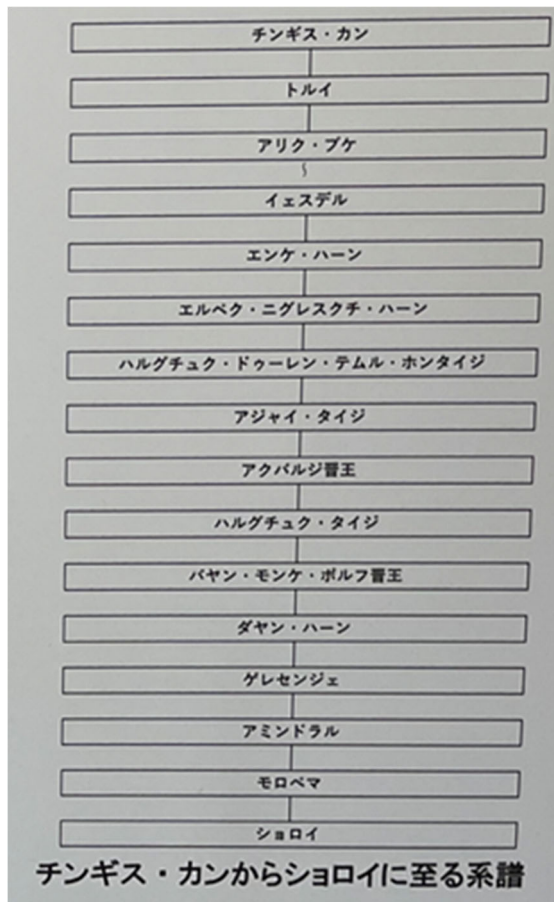 チンギス・カン
トルイ
アリク・ブケ
イェスデル
エンケ・ハーン
エルベク・ニグレスクチ・ハーン
ハルグチュク・ドゥーレン・テムル・ホンタイジ
アジャイ・タイジ
アクバルジ晋王
ハルグチュク・タイジ
バヤン・モンケ・ボルフ晋王
ダヤン・ハーン
ゲレセンジェ
アミンドラル
モロベマ
ショロイ
チンギス・カンからショロイに至る系譜